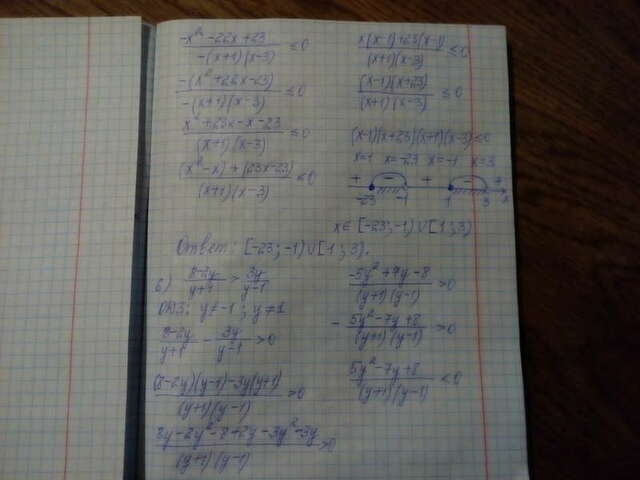 (-x² - 22x + 23)/(-(x+1)(x-3)) ≤ 0
(-(x² + 22x - 23))/(-(x+1)(x-3)) ≤ 0
(x² + 23x - x - 23)/((x+1)(x-3)) ≤ 0
((x² - x) + (23x - 23))/((x+1)(x-3)) ≤ 0
(x(x-1) + 23(x-1))/((x+1)(x-3)) ≤ 0
((x-1)(x+23))/((x+1)(x-3)) ≤ 0
(x-1)(x+23)(x+1)(x-3) ≤ 0
x=1 x=-23 x=-1 x=3
+ - + - +
-23 -1 1 3 x
x ∈ [-23; -1) ∪ [1; 3)
Ответ: [-23; -1) ∪ [1; 3).
б) (8-2y)/(y+1) > 3y/(y-1)
ОДЗ: y ≠ -1; y ≠ 1
(8-2y)/(y+1) - 3y/(y-1) > 0
((8-2y)(y-1) - 3y(y+1))/((y+1)(y-1)) > 0
(8y - 2y² - 8 + 2y - 3y² - 3y)/((y+1)(y-1)) > 0
(-5y² + 7y - 8)/((y+1)(y-1)) > 0
- (5y² - 7y + 8)/((y+1)(y-1)) > 0
(5y² - 7y + 8)/((y+1)(y-1)) < 0